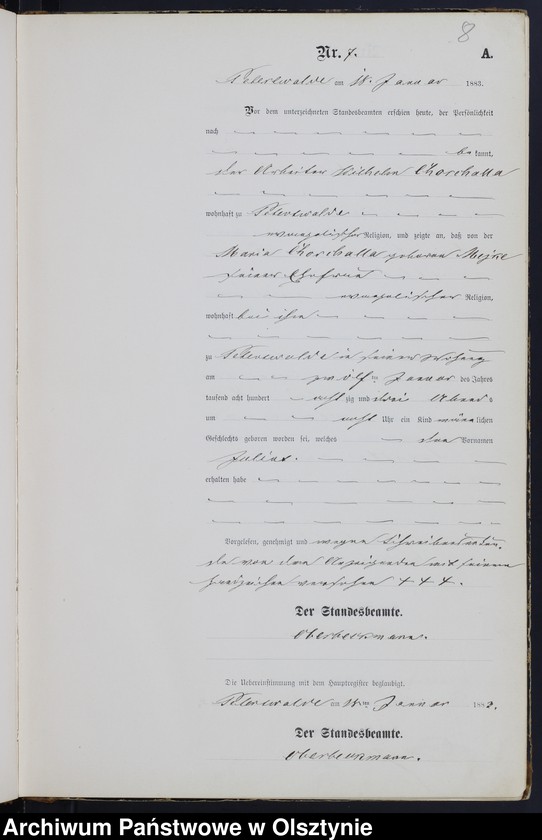 8
Nr. 7. A.
Peterswalde am 18. Januar 1883.
Vor dem unterzeichneten Standesbeamten erschien heute, der Persönlichkeit
nach
be kannt,
der Arbeiter Wilhelm Chorchalla
wohnhaft zu Peterswalde
evangelischer Religion, und zeigte an, daß von der
Maria Chorchalla geborene
seiner Ehefrau
evangelischer Religion,
wohnhaft bei ihm
zu Peterswalde in seiner Wohnung
am zwölf ten Januar des Jahres
tausend acht hundert acht zig und drei Abend s
um acht Uhr ein Kind männ lichen
Geschlechts geboren worden sei, welches den Vornamen
Julius.
erhalten habe
Vorgelesen, genehmigt und wegen
von dem Anzeigenden mit seinem
Handzeichen versehen + + +.
Der Standesbeamte.
Oberbeckmann.
Die Uebereinstimmung mit dem Hauptregister beglaubigt.
Peterswalde am 18ten Januar 1883.
Der Standesbeamte.
Oberbeckmann.
Archiwum Państwowe w Olsztynie